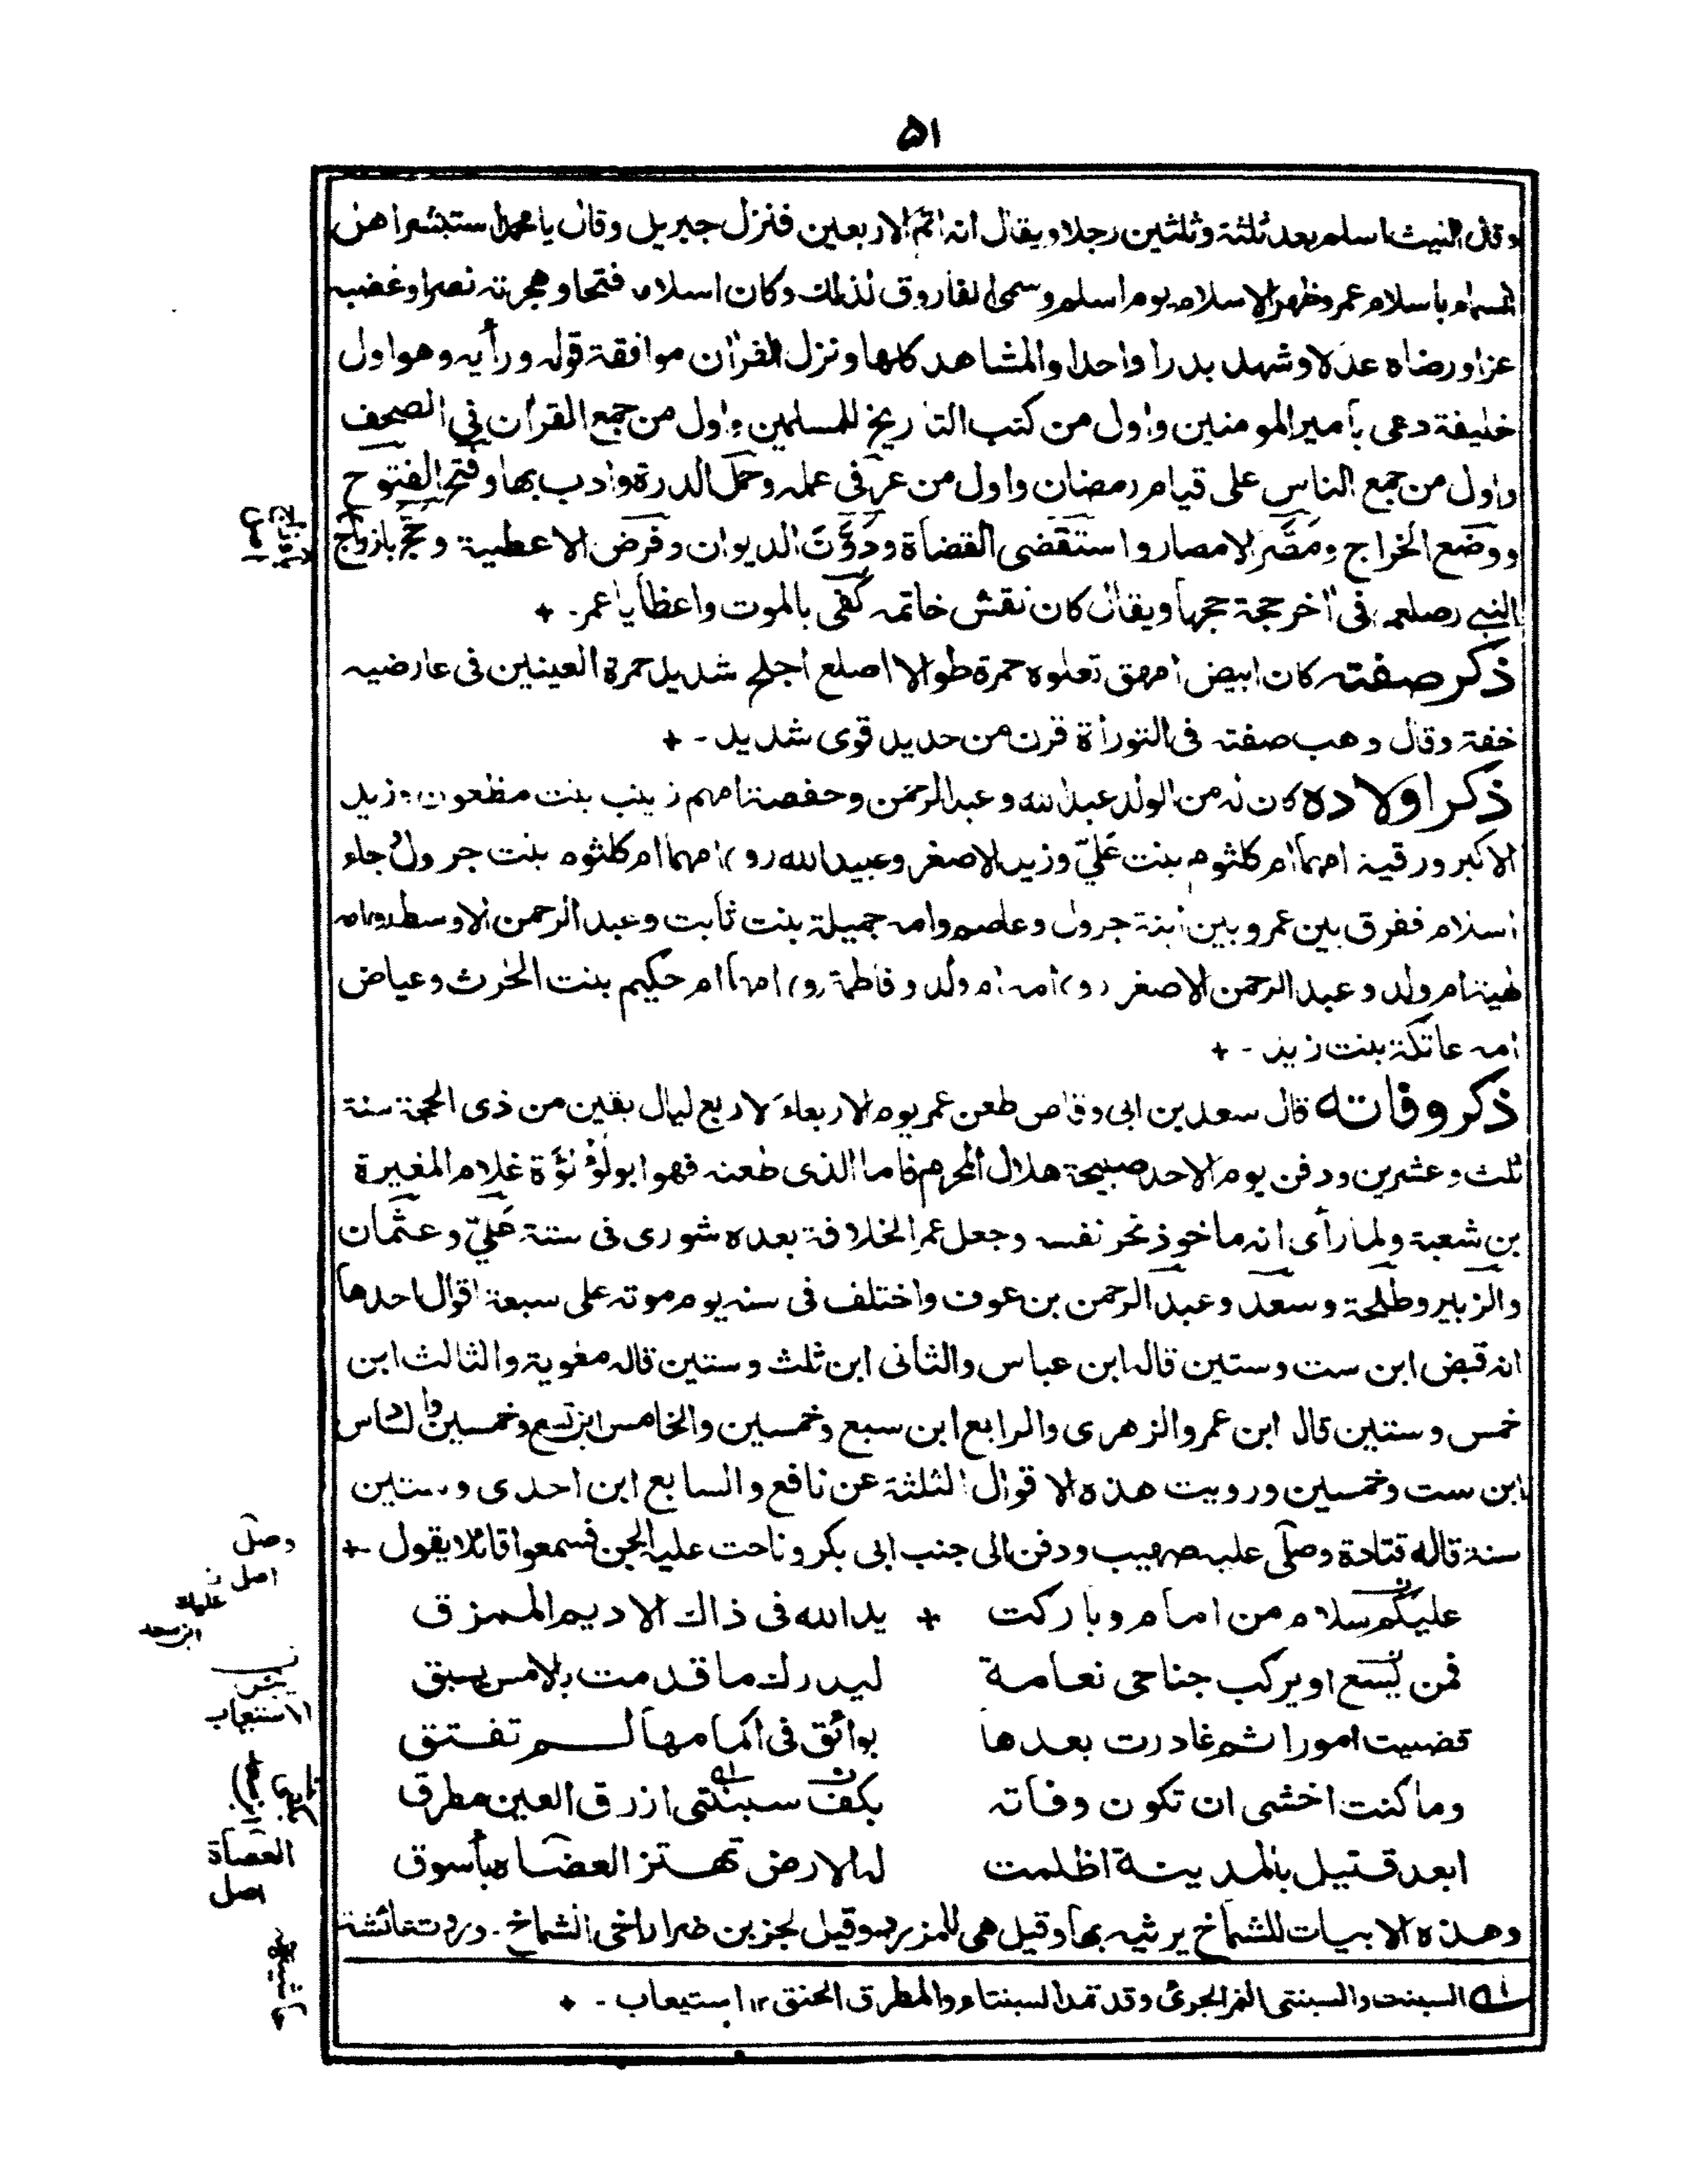 ۵۱
وقال الليث اسلم بعد ثلثة وثلثين رجلا ويقال انه اتم الاربعين فنزل جبريل وقال يا محمد استبشر اهل
السماء باسلام عمر وظهر الاسلام يوم اسلم وسمى الفاروق لذلك وكان اسلامه فتحا وهجرته نصرا وغضبه
عزا ورضاه عدلا وشهد بدرا واحدا والمشاهد كلها ونزل القرآن موافقة قوله ورأيه وهو اول
خليفة دعى بأمير المومنين واول من كتب التاريخ للمسلمين واول من جمع القرآن في الصحف
واول من جمع الناس على قيام رمضان واول من عس في عمله وحمل الدرة وادب بها وفتح الفتوح
ووضع الخراج ومَصَّر الامصار واستقضى القضاة ودَوَّنَ الديوان وفرض الاعطية وحج بازواج
النبي صلعم في آخر حجة حجها ويقال كان نقش خاتمه كفى بالموت واعظا يا عمر - +
ذكر صفته كان ابيض امهق تعلوه حمرة طوالا اصلع اجلح شديد حمرة العينين في عارضيه
خفة وقال وهب صفته في التوراة قرن من حديد قوى شديد - +
ذكر اولاده كان له من الولد عبدالله وعبدالرحمن وحفصة امهم زينب بنت مظعون وزيد
الاكبر ورقية امهما ام كلثوم بنت عَليّ وزيد الاصغر وعبيدالله (و) امهما ام كلثوم بنت جرول جاء
اسلام ففرق بين عمر وبين ابنة جرول وعاصم وامه جميلة بنت ثابت وعبد الرحمن الاوسط وامه
لهية ام ولد وعبد الرحمن الاصغر (و) امه ام ولد وفاطمة (و) امها ام حكيم بنت الحرث وعياض
امه عاتكة بنت زيد - +
ذكر وفاته قال سعد بن ابى وقاص طعن عمر يوم الاربعاء لاربع ليال بقين من ذى الحجة سنة
ثلث وعشرين ودفن يوم الاحد صبيحة هلال المحرم فاما الذى طعنه فهو ابو لؤلؤة غلام المغيرة
بن شعبة ولما رأى انه ماخوذ نحر نفسه وجعل عمر الخلافة بعده شورى فى ستة عَليّ وعثمان
والزبير وطلحة وسعد وعبد الرحمن بن عوف واختلف فى سنه يوم موته على سبعة اقوال احدها
انه قبض ابن ست وستين قاله ابن عباس والثانى ابن ثلث وستين قاله معوية والثالث ابن
خمس وستين قال ابن عمر والزهرى والرابع ابن سبع وخمسين والخامس ابن تسع وخمسين والسادس
ابن ست وخمسين ورويت هذه الاقوال الثلثة عن نافع والسابع ابن احدى وستين
سنة قاله قتادة وصلّى عليه صهيب ودفن الى جنب ابى بكر وناحت عليه الجن فسمعوا قائلا يقول - +
وصل
اصل
عليك
ابن سعد
عليكم سلام من امام وباركت + يد الله فى ذاك الاديم الممزق
فمن يسع او يركب جناحى نعامة ليدرك ما قدمت بالامس يسبق
الاستيعاب
قضيت امورا ثم غادرت بعدها بوائق فى اكمامها لم تفتق
وما كنت اخشى ان تكون وفاته بكف سبنتى ازرق العين مطرق
ابعد قتيل بالمدينة اظلمت له الارض تهتز العضاه بأسوق
العصاة
اصل
وهذه الابيات للشماخ يرثيه بها وقيل هى للمزرد وقيل لجزء بن ضرار اخى الشماخ - وردت عائشة
حاشية
له السبنت والسبنتى النمر الجرئ وقد تمد السبنتاء والمطرق الحنق ۱۲ استيعاب - +